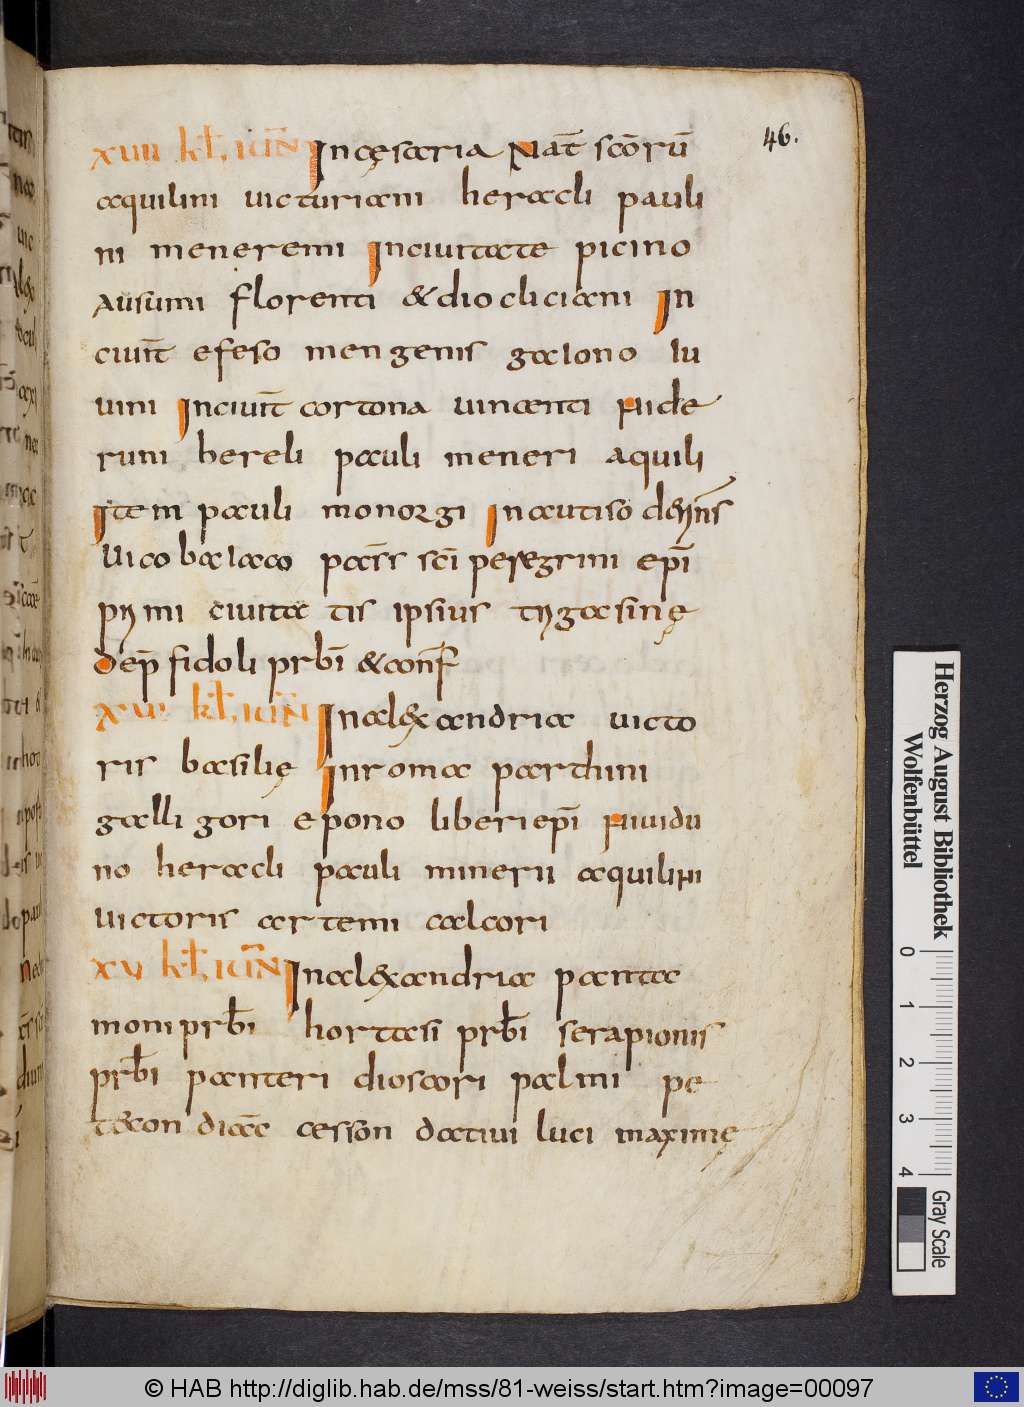 46.
xuii kł. iun̄ In cęsaria Nat̄ scōrū
aquilini uicturiani heracli pauli
ni meneremi Inciuitate picino
Ausumi florenti & diocliciani In
ciuit̄ efeso mengenis galono Iu
uini Inciuit̄ cortona uincenti Nide
runi hereli pauli meneri aquili
Item pauli monorgi Inautisio
uico baiaco pass̄ sc̄i peregrini ep̄i
prymi ciuita tis ipsius
dep̄ fidoli prb̄i & conf̄
xui kł. iun̄ Inal&xandria uicto
ris basilię Inroma parthini
galli gori epono liberi ep̄i Niuidu
no heracli pauli minerii aquilini
uictoris artemi calcori
xu kł. iun̄ Inal&xandria panta
moni prb̄i hortasi prb̄i serapionis
prb̄i panteri dioscori palmi pe
t&con diāc cesson datiui luci maximę
Herzog August Bibliothek
Wolfenbüttel
0 1 2 3 4
Gray Scale
© HAB http://diglib.hab.de/mss/81-weiss/start.htm?image=00097